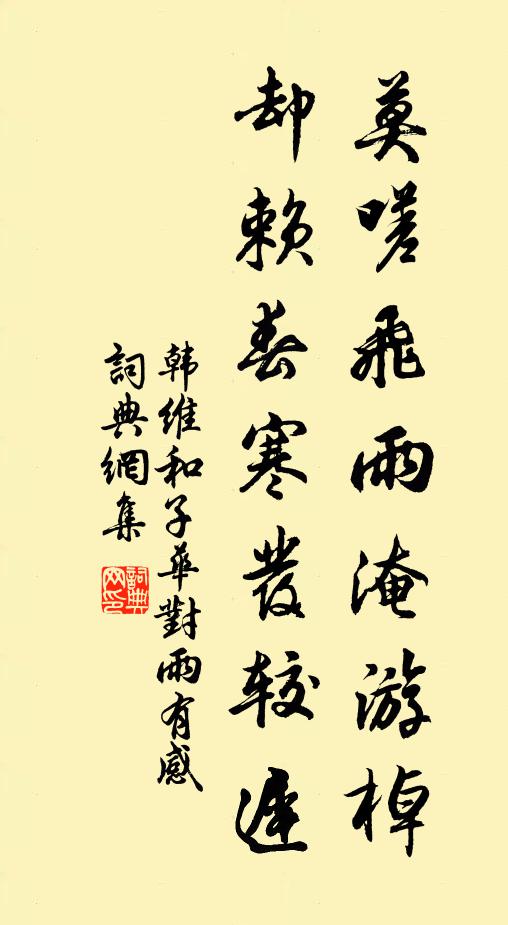 莫嗟飛雨淹游棹
却賴春寒發較遲
韩維和子華對雨有感
詞典網集
詞典網印